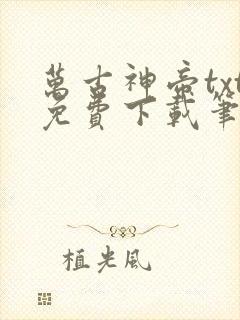 萬古神帝txt
免費下載筆
植光風